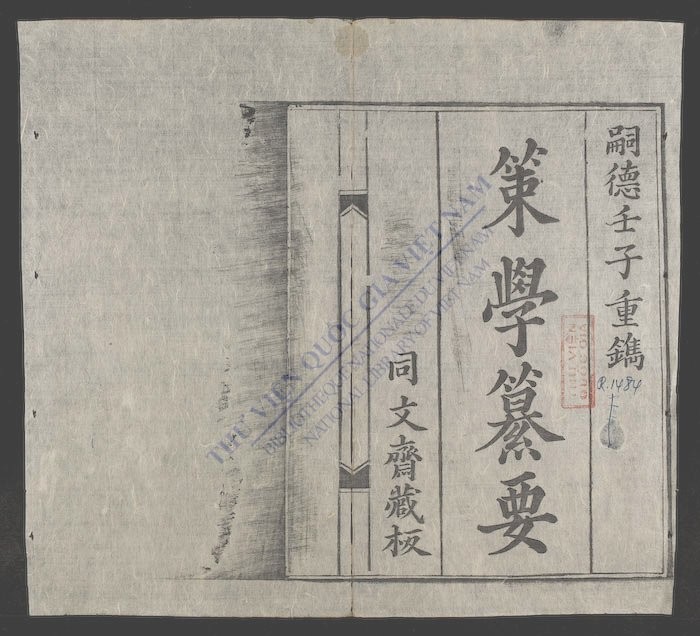 嗣德壬子重鐫
策學纂要
同文齋藏板
R.1484
THƯ VIỆN QUỐC GIA VIỆT NAM
BIBLIOTHÈQUE NATIONALE DU VIETNAM
NATIONAL LIBRARY OF VIETNAM